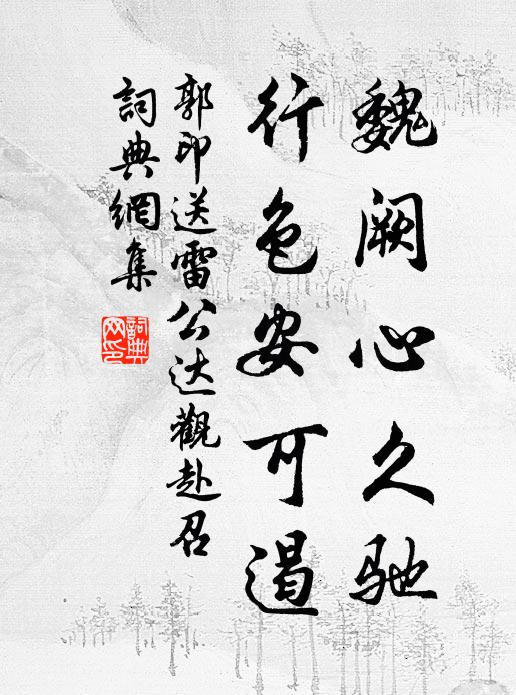 魏阙心久驰
行色安可遏
郭印送雷公达觀赴召
詞典網集
詞典
网印